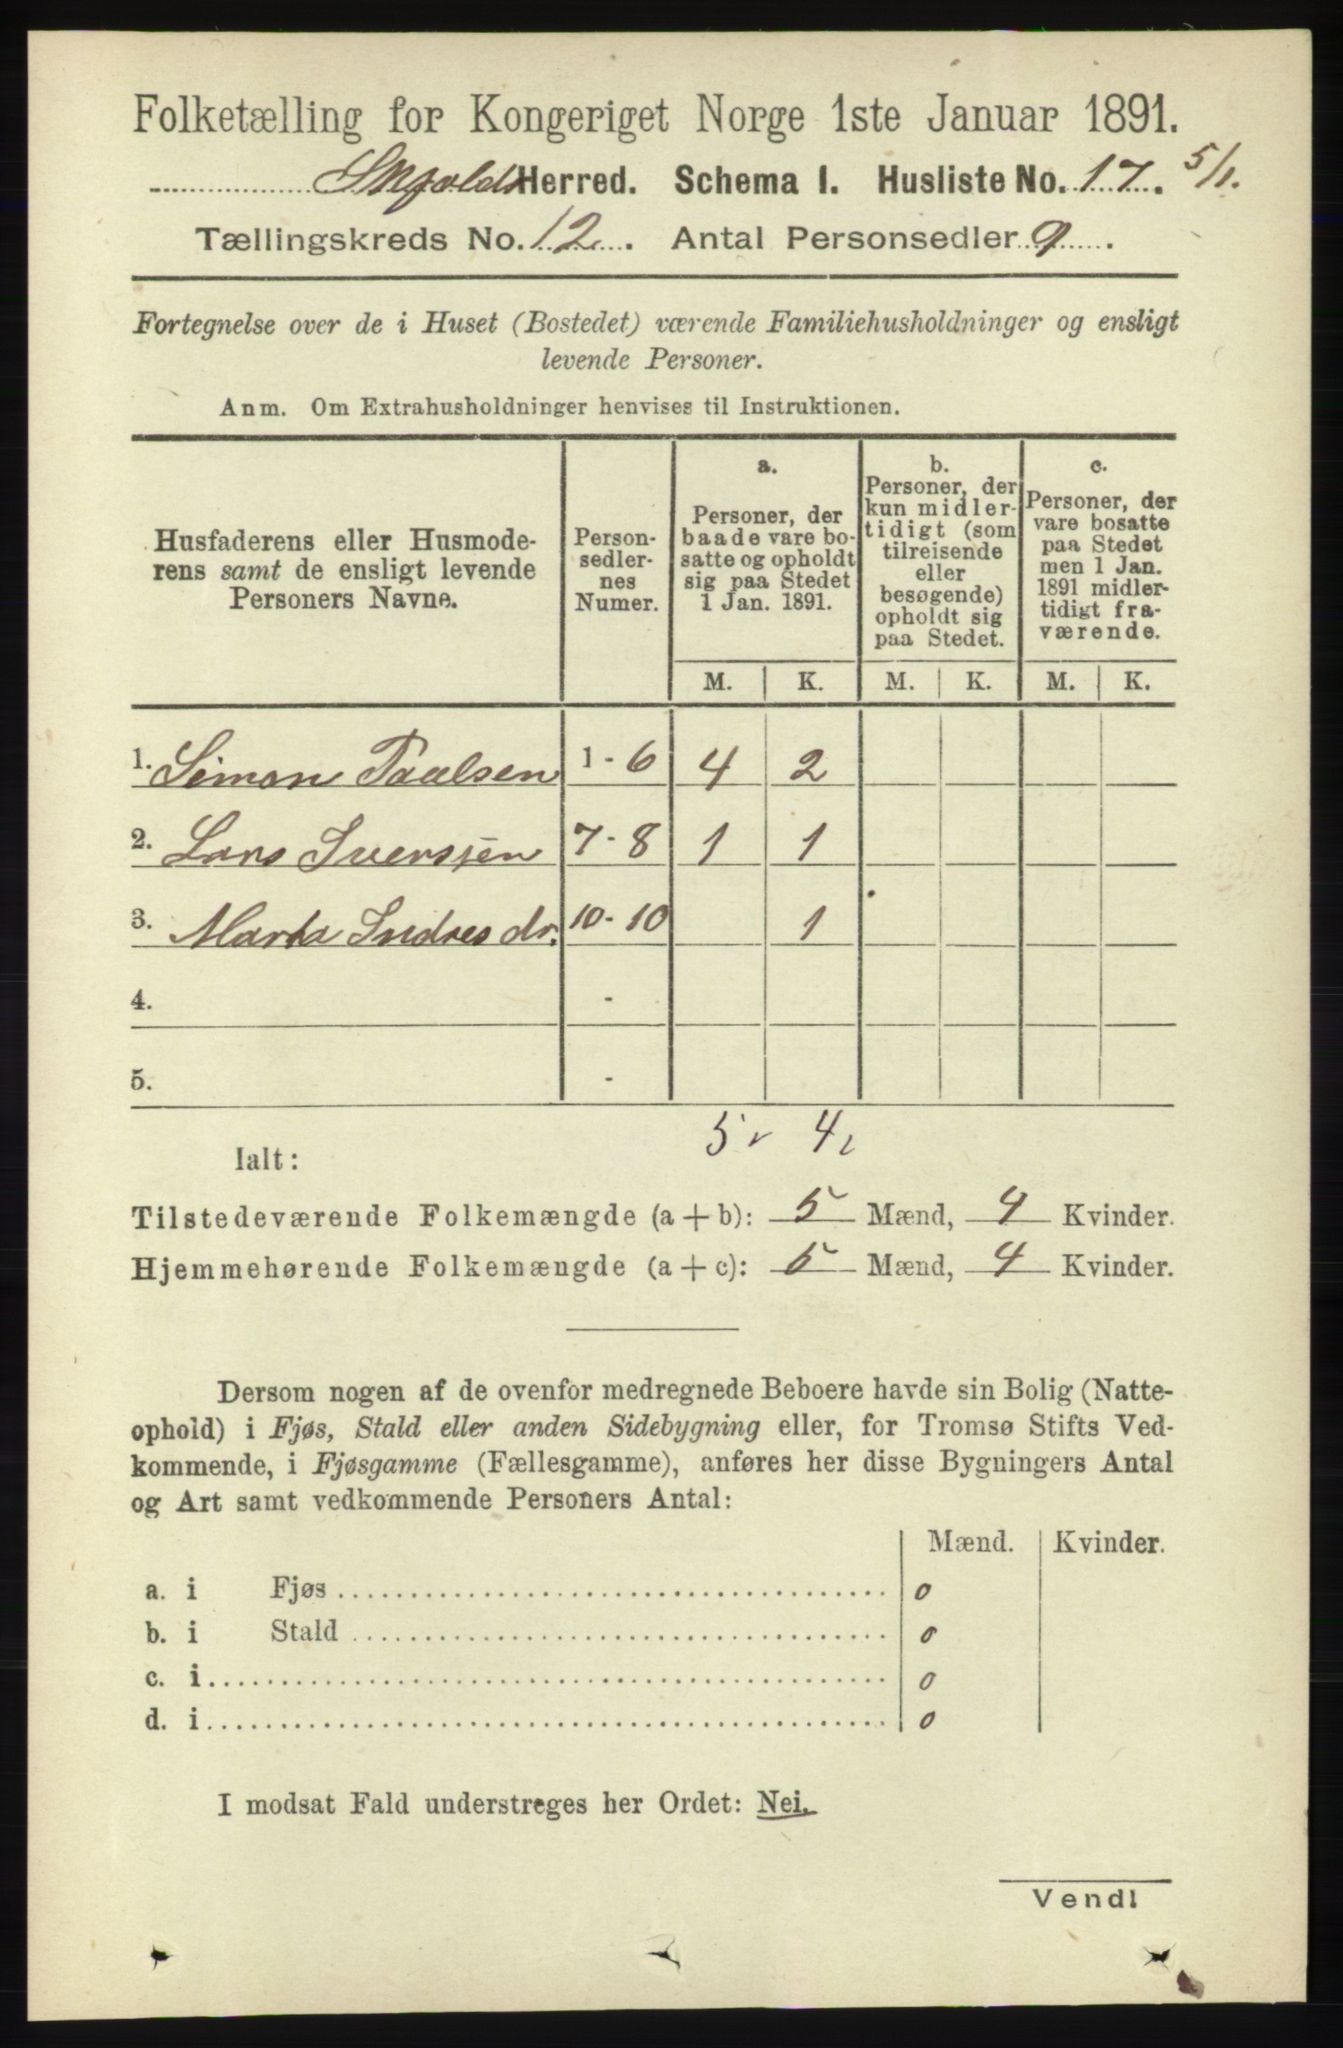 Folketælling for Kongeriget Norge 1ste Januar 1891.
Skjold Herred. Schema I. Husliste No. 17. 5/1.
Tællingskreds No. 12. Antal Personsedler 9.
Fortegnelse over de i Huset (Bostedet) værende Familiehusholdninger og ensligt
levende Personer.
Anm. Om Extrahusholdninger henvises til Instruktionen.
Husfaderens eller Husmode-
rens samt de ensligt levende
Personers Navne.
Person-
sedler-
nes
Numer.
a.
Personer, der
baade vare bo-
satte og opholdt
sig paa Stedet
1 Jan. 1891.
b.
Personer, der
kun midler-
tidigt (som
tilreisende
eller
besøgende)
opholdt sig
paa Stedet.
c.
Personer, der
vare bosatte
paa Stedet
men 1 Jan.
1891 midler-
tidigt fra-
værende.
M. K. M. K. M. K.
1. Simon Paulsen 1 - 6 4 2
2. Lars Iverssen 7 - 8 1 1
3. Marta Indres dr. 10 - 10 1
4. -
5. -
Ialt: 5 4
Tilstedeværende Folkemængde (a + b): 5 Mænd, 4 Kvinder.
Hjemmehørende Folkemængde (a + c): 5 Mænd, 4 Kvinder.
Dersom nogen af de ovenfor medregnede Beboere havde sin Bolig (Natte-
ophold) i Fjøs, Stald eller anden Sidebygning eller, for Tromsø Stifts Ved-
kommende, i Fjøsgamme (Fællesgamme), anføres her disse Bygningers Antal
og Art samt vedkommende Personers Antal:
Mænd. Kvinder.
a. i Fjøs 0
b. i Stald 0
c. i 0
d. i 0
I modsat Fald understreges her Ordet: Nei.
Vend!